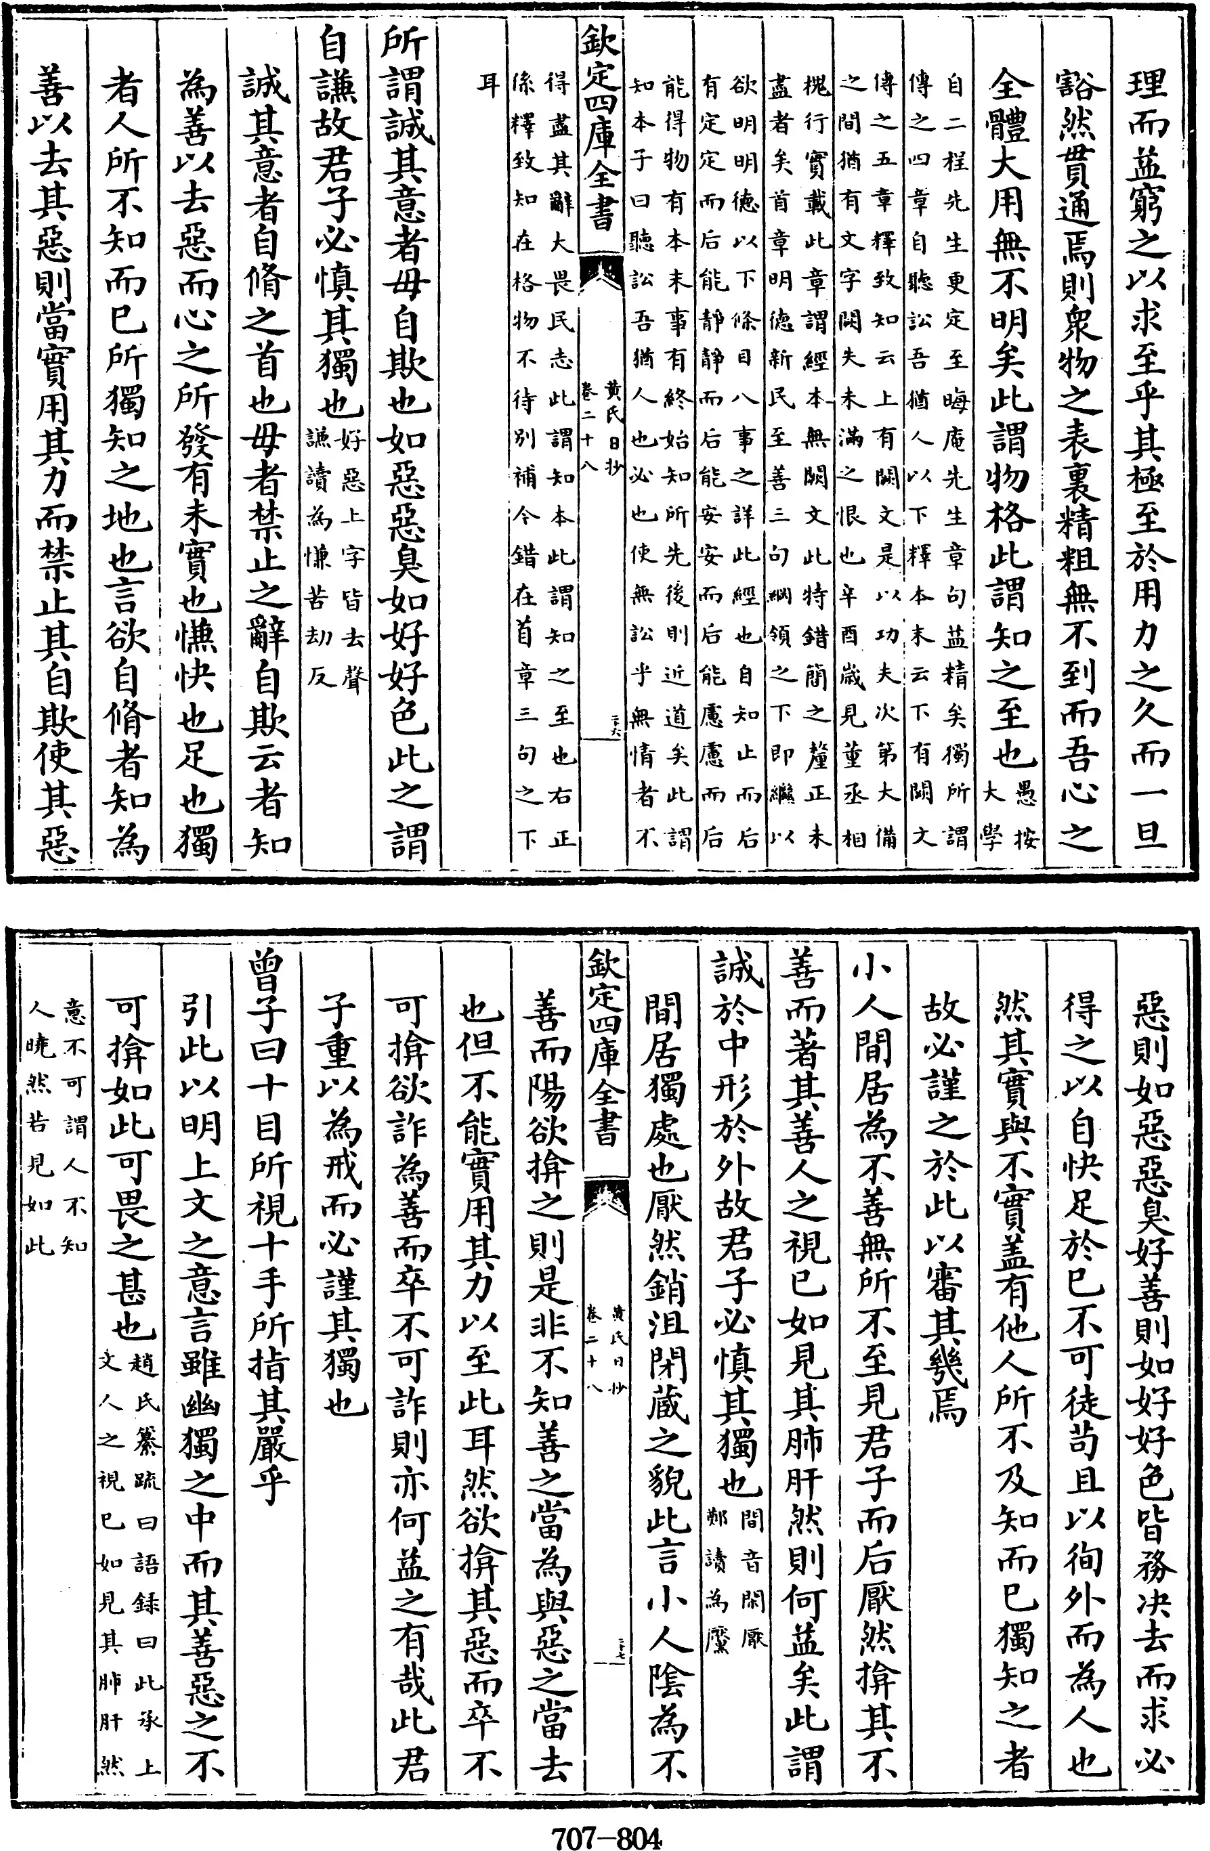 理而益窮之以求至乎其極至於用力之久而一旦
豁然貫通焉則衆物之表裏精粗無不到而吾心之
全體大用無不明矣此謂物格此謂知之至也愚按大學
自二程先生更定至晦庵先生章句益精矣獨所謂
傳之四章自聽訟吾猶人以下釋本末云下有闕文
傳之五章釋致知云上有闕文是以功夫次第大備
之間猶有文字闕失未滿之恨也辛酉歲見董丞相
槐行實載此章謂經本無闕文此特錯簡之釐正未
盡者矣首章明德新民至善三句綱領之下即繼以
欲明明德以下條目八事之詳此經也自知止而后
有定定而后能靜靜而后能安安而后能慮慮而后
能得物有本末事有終始知所先後則近道矣此謂
知本子曰聽訟吾猶人也必也使無訟乎無情者不
欽定四庫全書
黃氏日抄
卷二十八
二十六
得盡其辭大畏民志此謂知本此謂知之至也右正
係釋致知在格物不待別補今錯在首章三句之下
耳
所謂誠其意者毋自欺也如惡惡臭如好好色此之謂
自謙故君子必慎其獨也好惡上字皆去聲謙讀為慊苦劫反
誠其意者自脩之首也毋者禁止之辭自欺云者知
為善以去惡而心之所發有未實也慊快也足也獨
者人所不知而己所獨知之地也言欲自脩者知為
善以去其惡則當實用其力而禁止其自欺使其惡
惡則如惡惡臭好善則如好好色皆務决去而求必
得之以自快足於己不可徒苟且以徇外而為人也
然其實與不實盖有他人所不及知而己獨知之者
故必謹之於此以審其幾焉
小人閒居為不善無所不至見君子而后厭然揜其不
善而著其善人之視已如見其肺肝然則何益矣此謂
誠於中形於外故君子必慎其獨也閒音閑厭鄭讀為黶
閒居獨處也厭然銷沮閉藏之貌此言小人陰為不
欽定四庫全書
黃氏日抄
卷二十八
二十七
善而陽欲揜之則是非不知善之當為與惡之當去
也但不能實用其力以至此耳然欲揜其惡而卒不
可揜欲詐為善而卒不可詐則亦何益之有哉此君
子重以為戒而必謹其獨也
曾子曰十目所視十手所指其嚴乎
引此以明上文之意言雖幽獨之中而其善惡之不
可揜如此可畏之甚也趙氏纂疏曰語錄曰此承上文人之視已如見其肺肝然
意不可謂人不知
人曉然若見如此
707-804